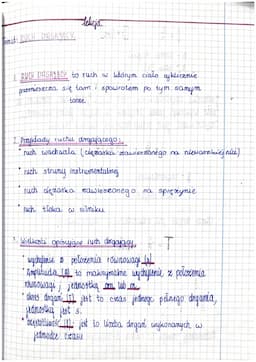 Lekcja
Temat: RUCH DRGAJĄCY.
1. RUCH DRGAJĄCY to ruch w którym ciało cyklicznie
przemieszcza się tam i spowrotem po tym samym
torze.
2. Przykłady ruchu drgającego:
* ruch wahadła (ciężarka zawieszonego na nierozciągliwej nici)
* ruch struny instrumentalnej
* ruch ciężarka zawieszonego na sprężynie
* ruch tłoka w silniku
3. Wielkości opisujące ruch drgający. T
* wychylenie z położenia równowagi (x)
* Amplituda (A) to maksymalne wychylenie z położenia
równowagi; jednostką cm lub m
* okres drgań (T) jest to czas jednego pełnego drgania,
jednostką jest s.
* częstotliwość (f) jest to liczba drgań wykonanych w
jednostce czasu